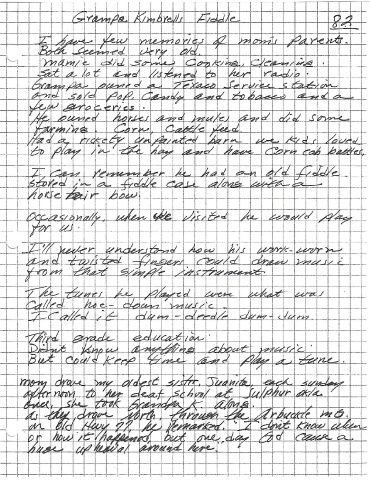 Grampa Kimbrells Fiddle
82
I have few memories of mom's parents.
Both seemed very old.
Mamie did some Cooking, Cleaning.
Sat a lot and listened to her radio.
Grampa owned a Texaco Service station
and sold Pop, Candy and tobacco and a
few groceries.
He owned horses and mules and did some
farming. Corn, Cattle feed.
Had a rickety unpainted barn we kids loved
to play in the hay and have Corn cob battles.
I can remember he had an old fiddle.
Stored in a fiddle case along with a
horse hair bow.
Occasionally, when we visited he would play
for us.
I'll never understand how his work-worn
and twisted fingers could draw music
from that simple instrument.
The tunes he played were what was
Called hoe-down music.
I Called it dum-deedle dum-dum.
Third grade education.
Didn't know anything about music.
But could keep time and play a tune.
Mom drove my oldest sister, Juanita, each Sunday
afternoon to her deaf school at Sulphur Okla.
Once, she took Grandpa K. along.
As they drove North through the Arbuckle mts.
on Old Hwy 77, he remarked. "I don't know when
or how it happened, but one day God cause a
huge upheaval around here."